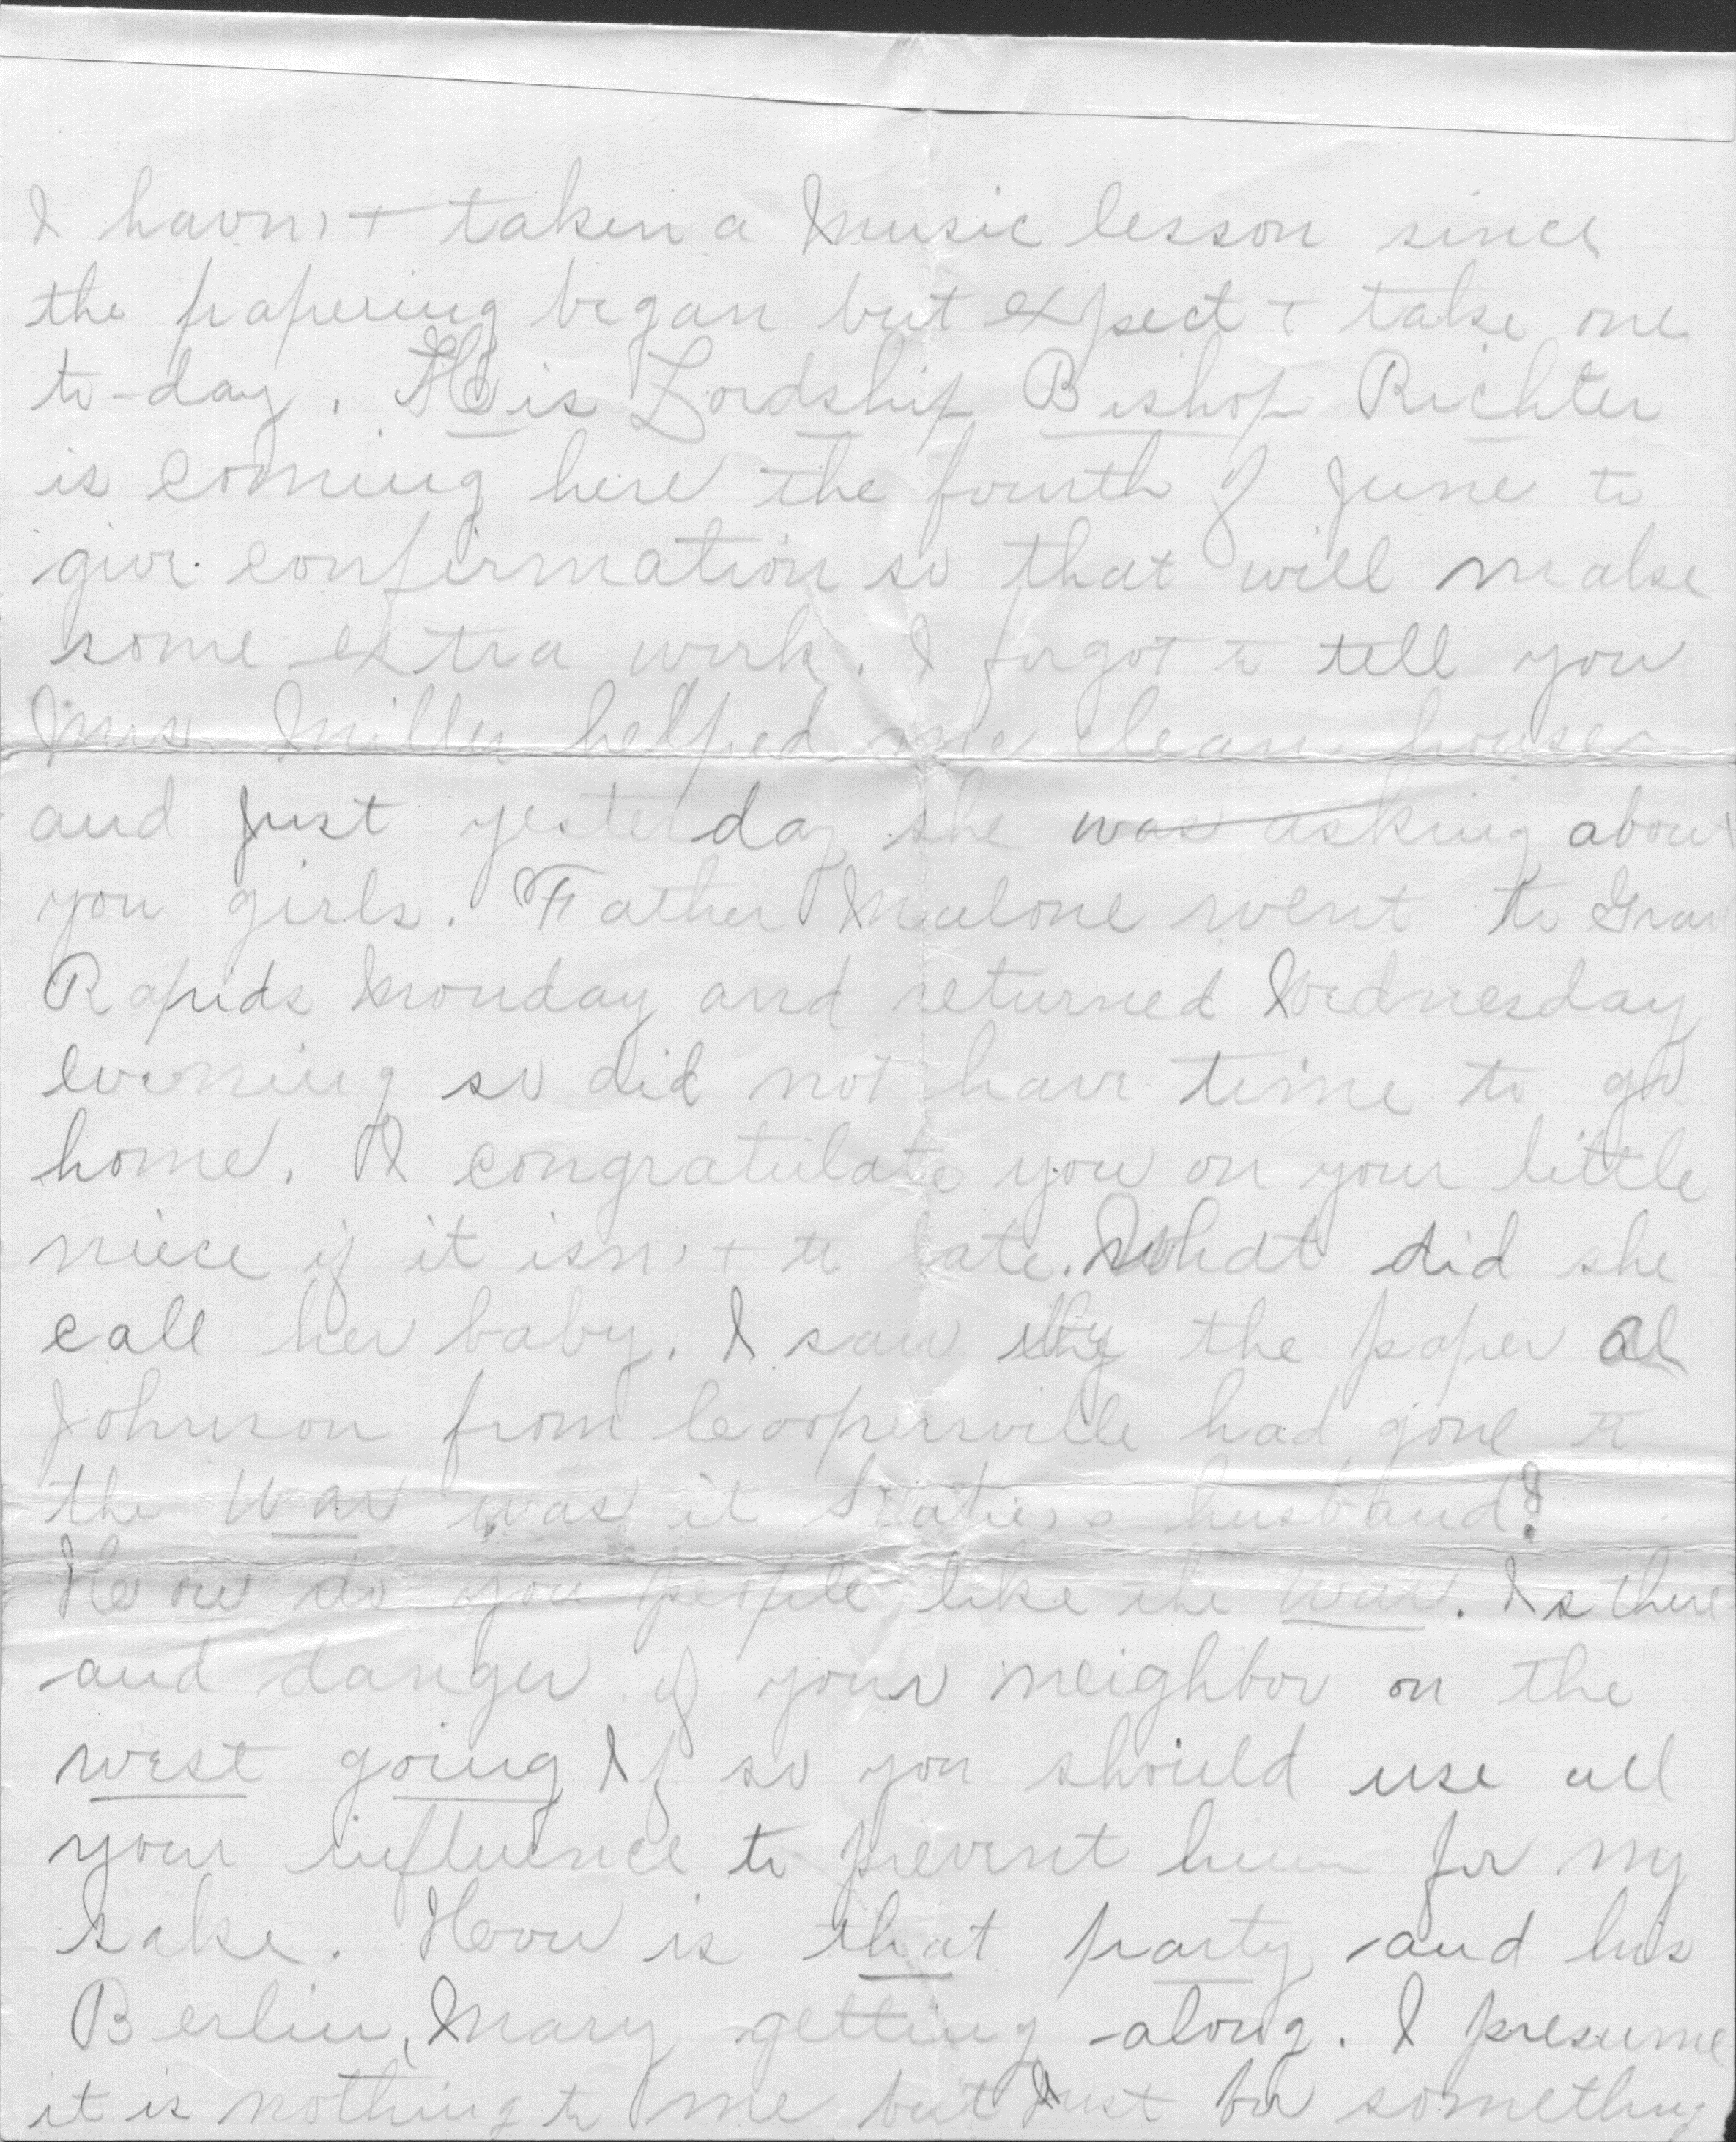 I havn't taken a music lesson since
the papering began but expect t take one
to-day. His Lordship Bishop Richter
is coming here the fourth of June to
give confirmation so that will make
some extra work. I forgot to tell you
Mrs. Miller helped me clean house
and just yesterday she was asking about
you girls. Father Malone went to Gran
Rapids Monday and returned Wednesday
evening so did not have time to go
home. I congratulate you on your little
niece if it isn't to late. What did she
call her baby. I saw by the paper Al
Johnson from Coopersville had gone to
the war was it Katie's husband?
How do you people like the war. Is there
and danger of your neighbor on the
west going If so you should use all
your influence to prevent him for my
sake. How is that party and his
Berlin, Mary getting along. I presume
it is nothing to me but just for something